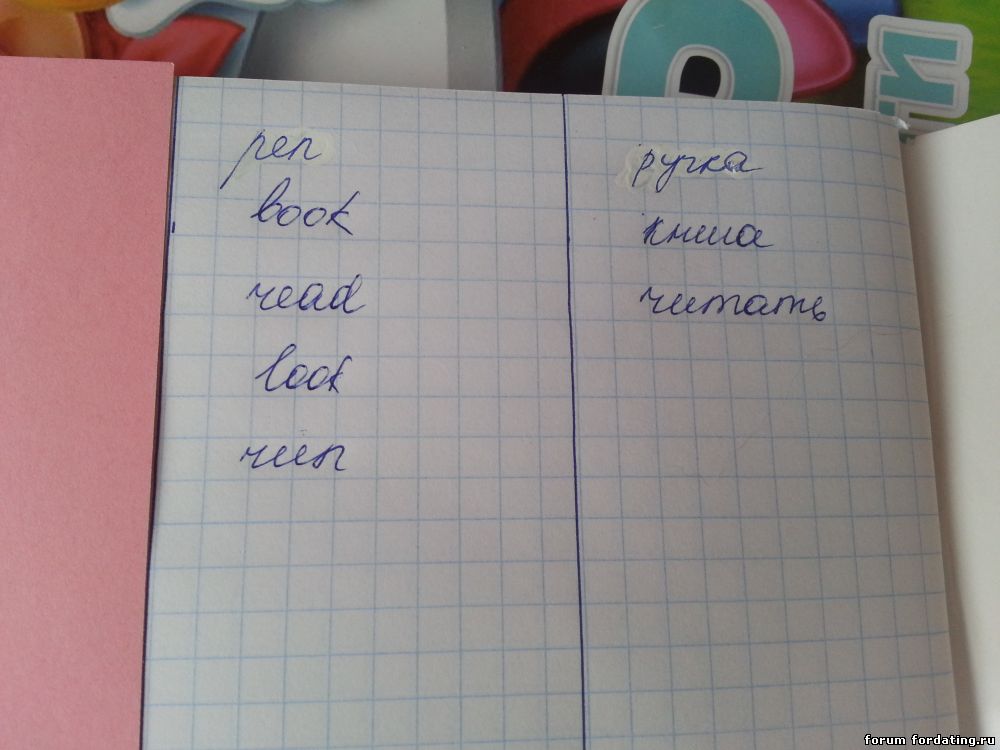 pen ручка
book книга
read читать
look
run
forum fordating.ru